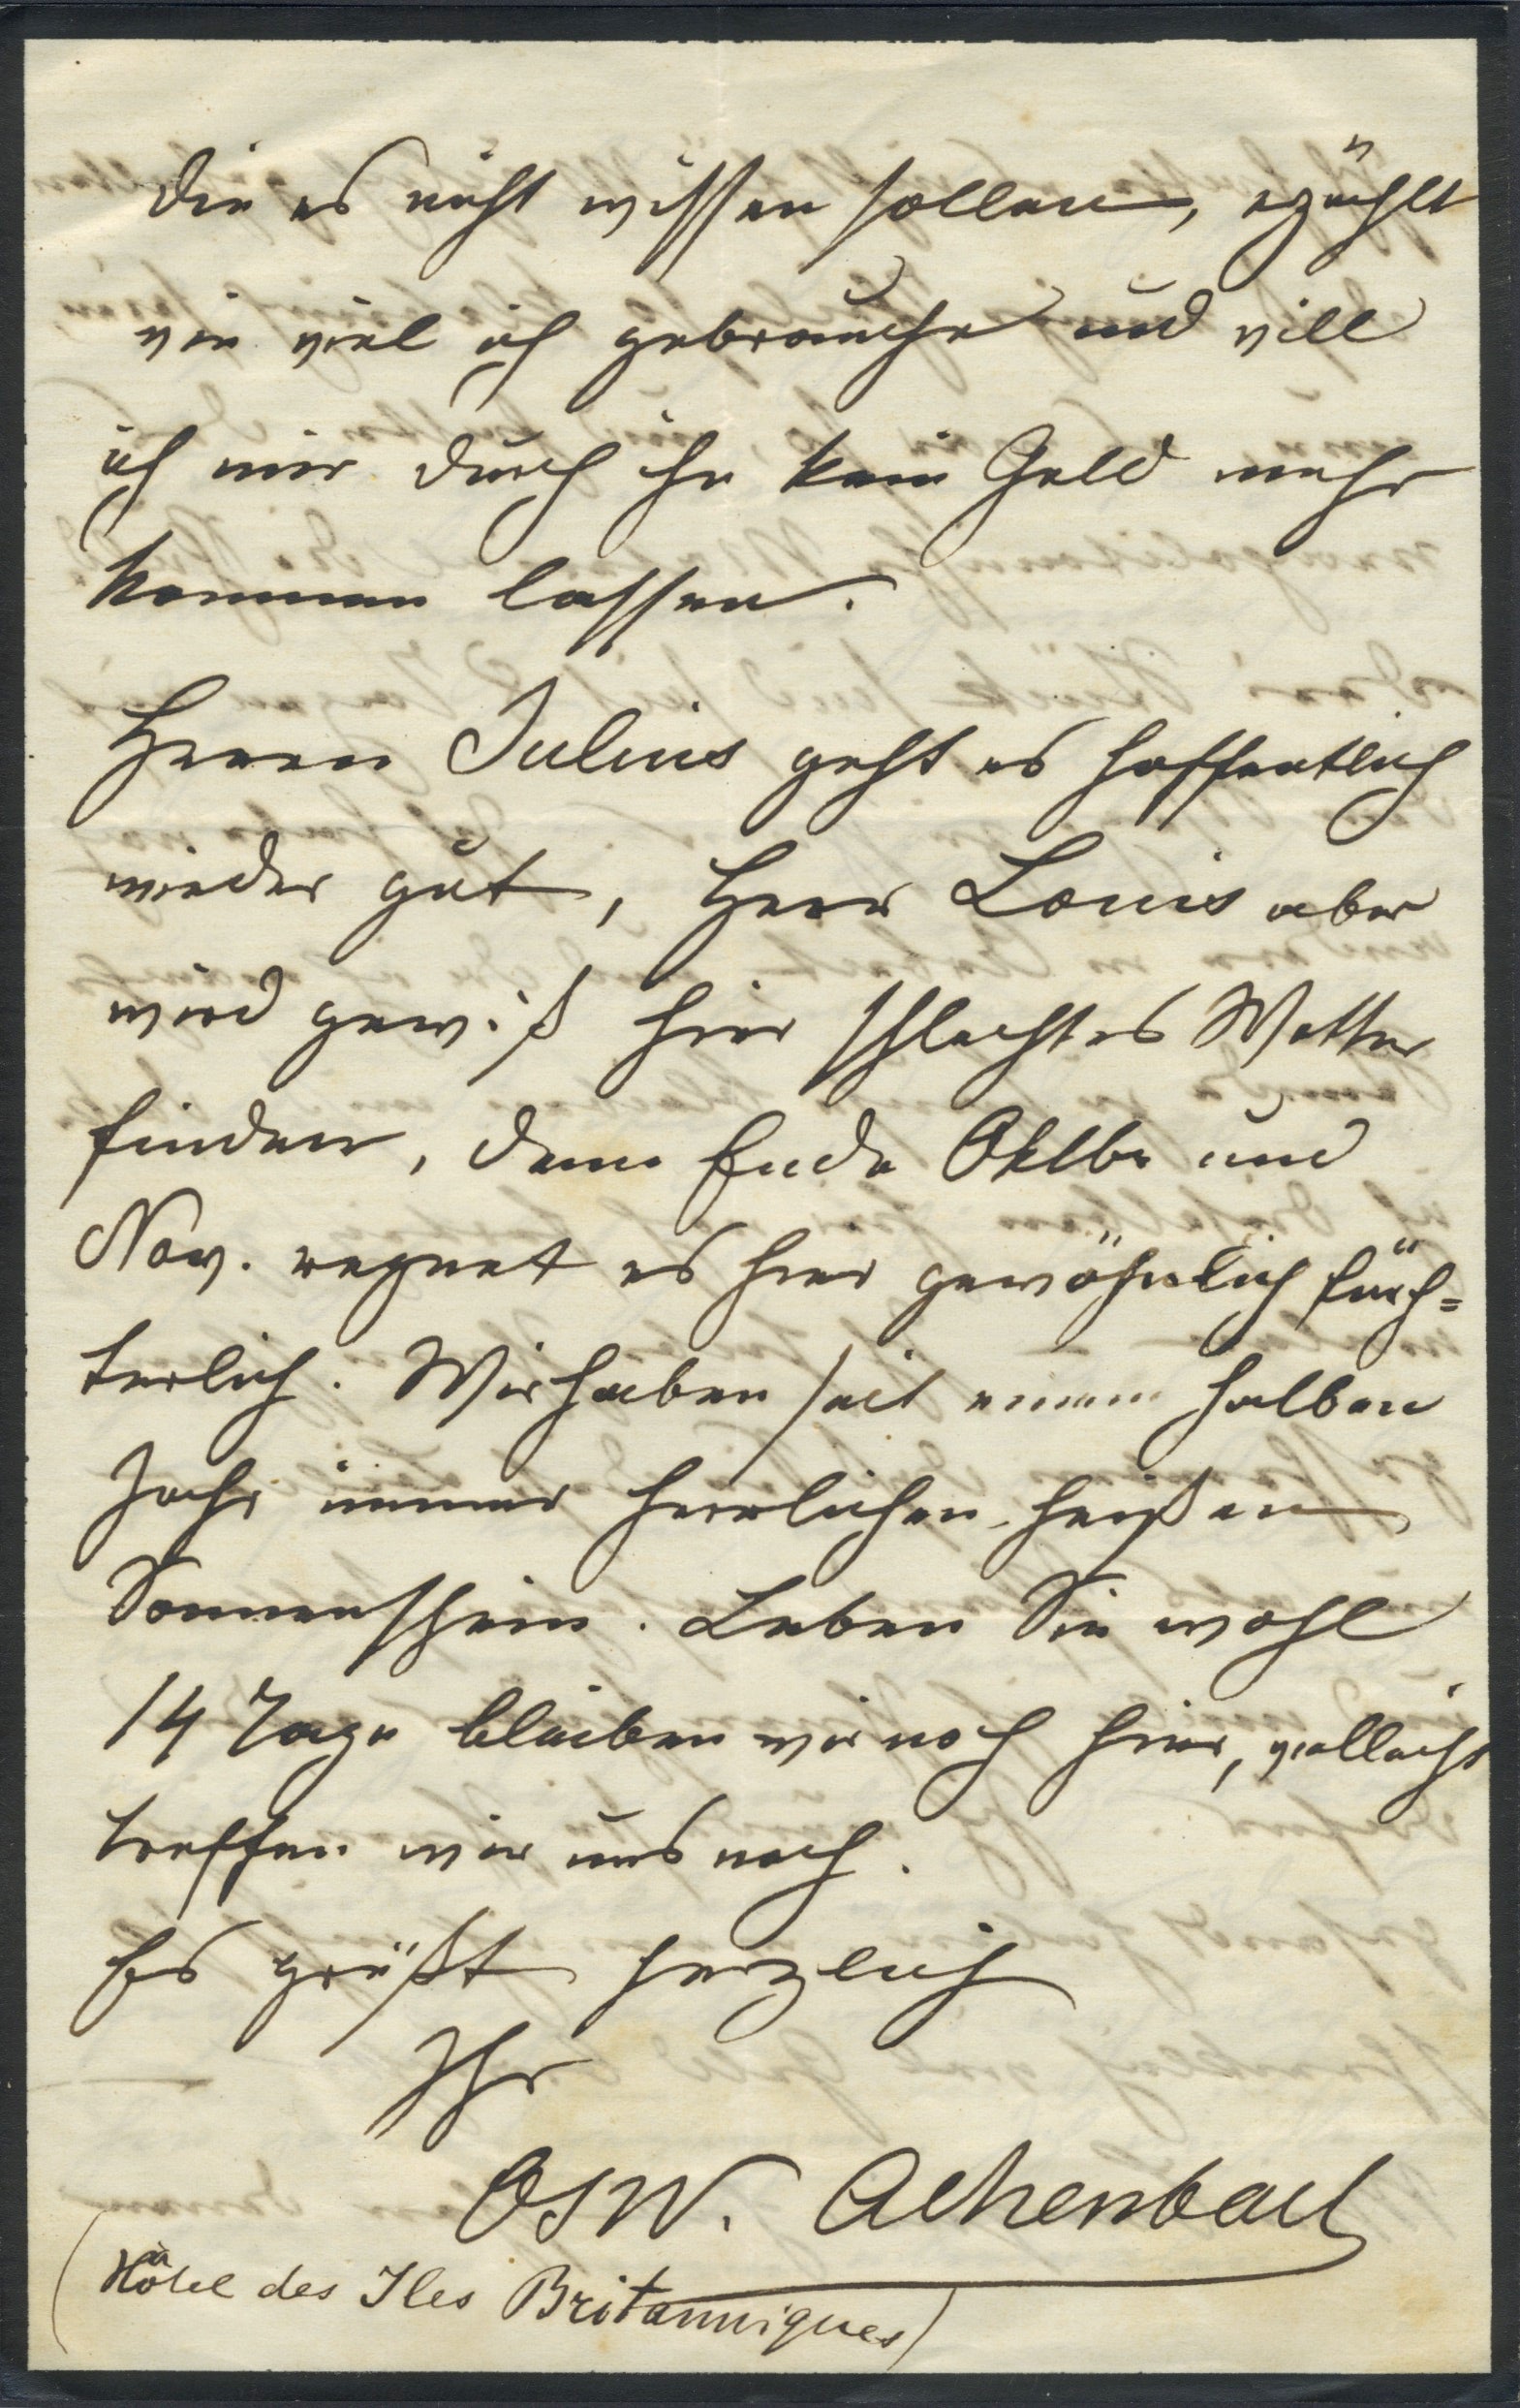 die es nicht wissen sollen, erzählt
wie viel ich gebrauche und will
ich mir durch ihn kein Geld mehr
kommen lassen.
Herrn Julius geht es hoffentlich
wieder gut, Herr Louis aber
wird gewiß hier schlechtes Wetter
finden, denn Ende Oktbr und
Nov. regnet es hier gewöhnlich fürch=
terlich. Wir haben seit einem halben
Jahr immer herrlichen, heißen
Sonnenschein. Leben Sie wohl
14 Tage bleiben wir noch hier, vielleicht
treffen wir uns noch.
Es grüßt herzlich
Ihr
Osw. Achenbach
(Hôtel des Iles Britanniques)